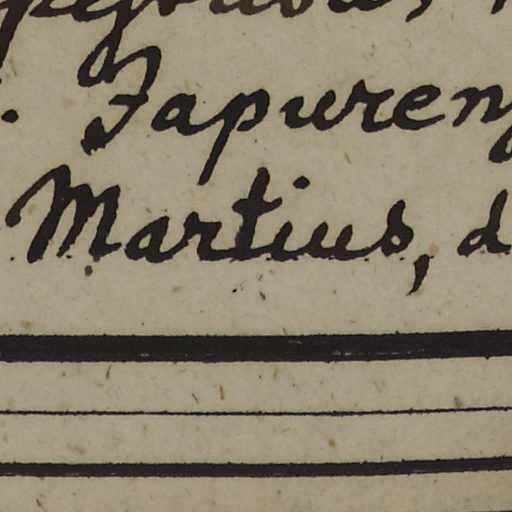 . Japuren
Martius, d